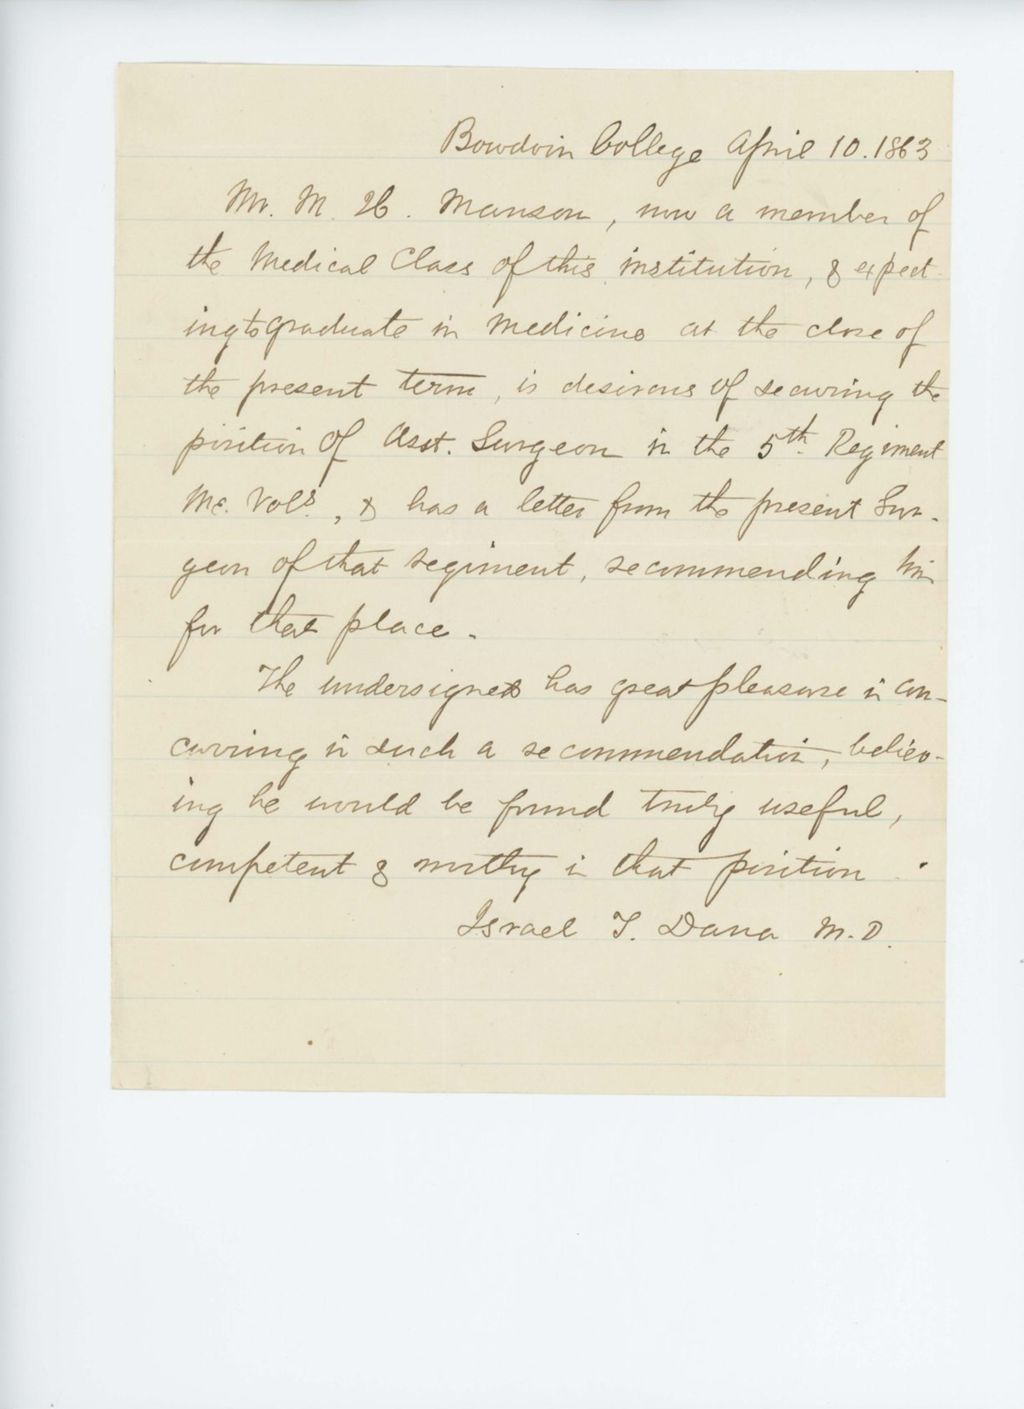 Bowdoin College April 10. 1863
Mr. M. H. Manson, now a member of
the Medical Class of this institution, & expect-
ing to graduate in medicine at the close of
the present term, is desirous of securing the
position of Asst. Surgeon in the 5th. Regiment
Me. Vols., & has a letter from the present Sur-
geon of that regiment, recommending him
for that place.
The undersigned has great pleasure in con-
curring in such a recommendation, believ-
ing he would be found truly useful,
competent & worthy in that position.
Israel T. Dana M.D.